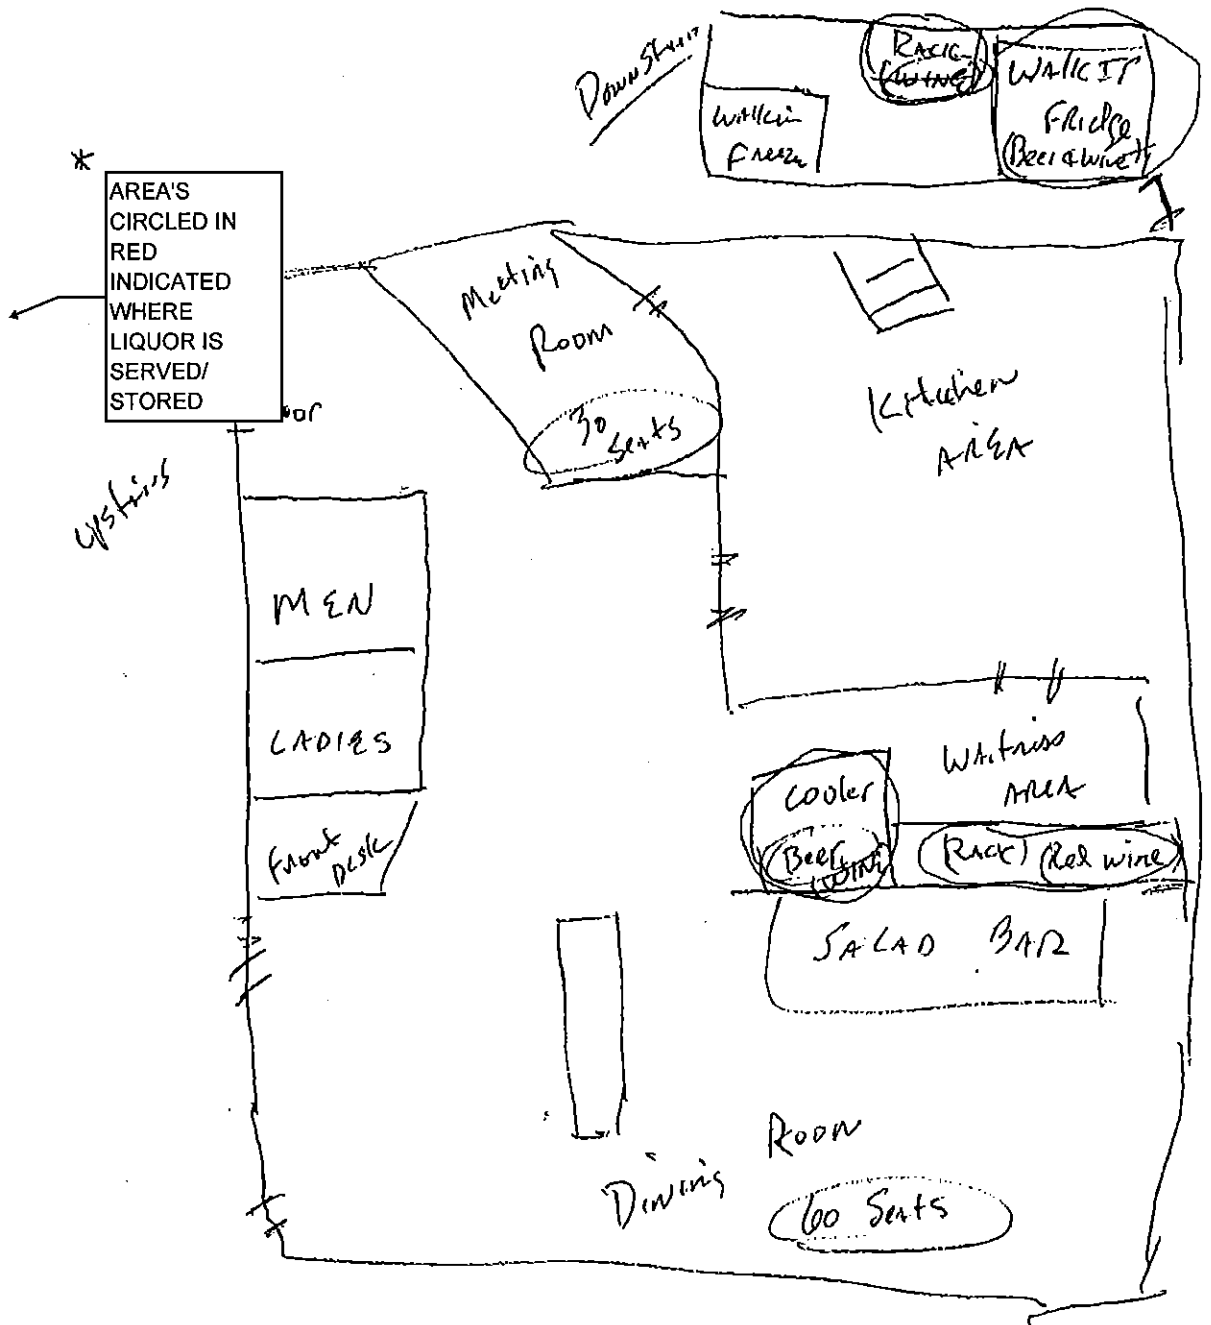 DOWNSTAIRS
RACK
(WINE)
WALK IN
FRIDGE
(Beer & wine)
WALKIN
FREEZE
*
AREA'S
CIRCLED IN
RED
INDICATED
WHERE
LIQUOR IS
SERVED/
STORED
oor
upstairs
Meeting
Room
30
Seats
Kitchen
AREA
MEN
LADIES
Front
Desk
Waitress
AREA
Cooler
(Beer
(WINE)
(RACK) (Red wine)
SALAD BAR
Dining Room
60 Seats